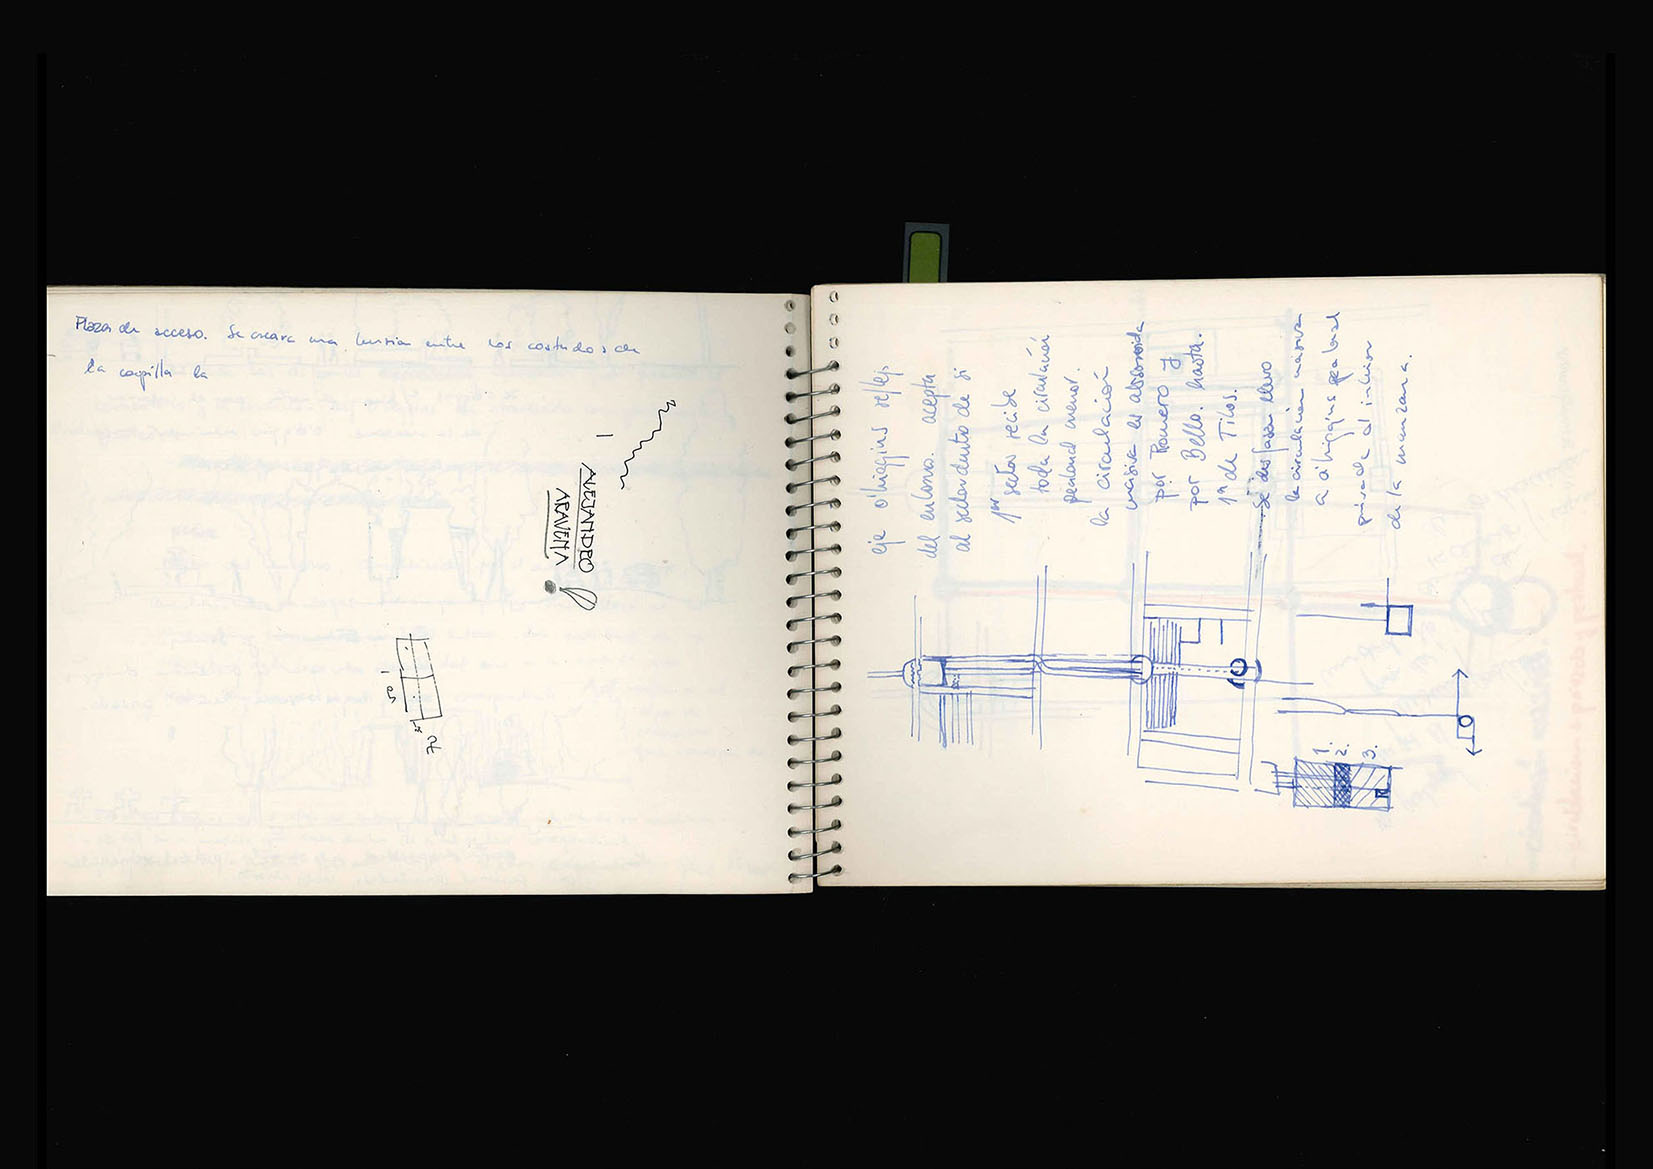 Plaza de acceso. Se creara una tension entre los costados de
la capilla la
ALEJANDRO
ARAVENA
50
70
eje o'higgins reflej.
del entorno. acepta
al
de si
1er sector recibe
toda la circulación
peatonal menor.
la circulación
masiva es absorvida
por Romero y
por Bello. hasta.
1a de Tilos.
Se
la circulacion masiva
a o'higgins peatonal
privada al interior
de la manzana.
1.
2.
3.